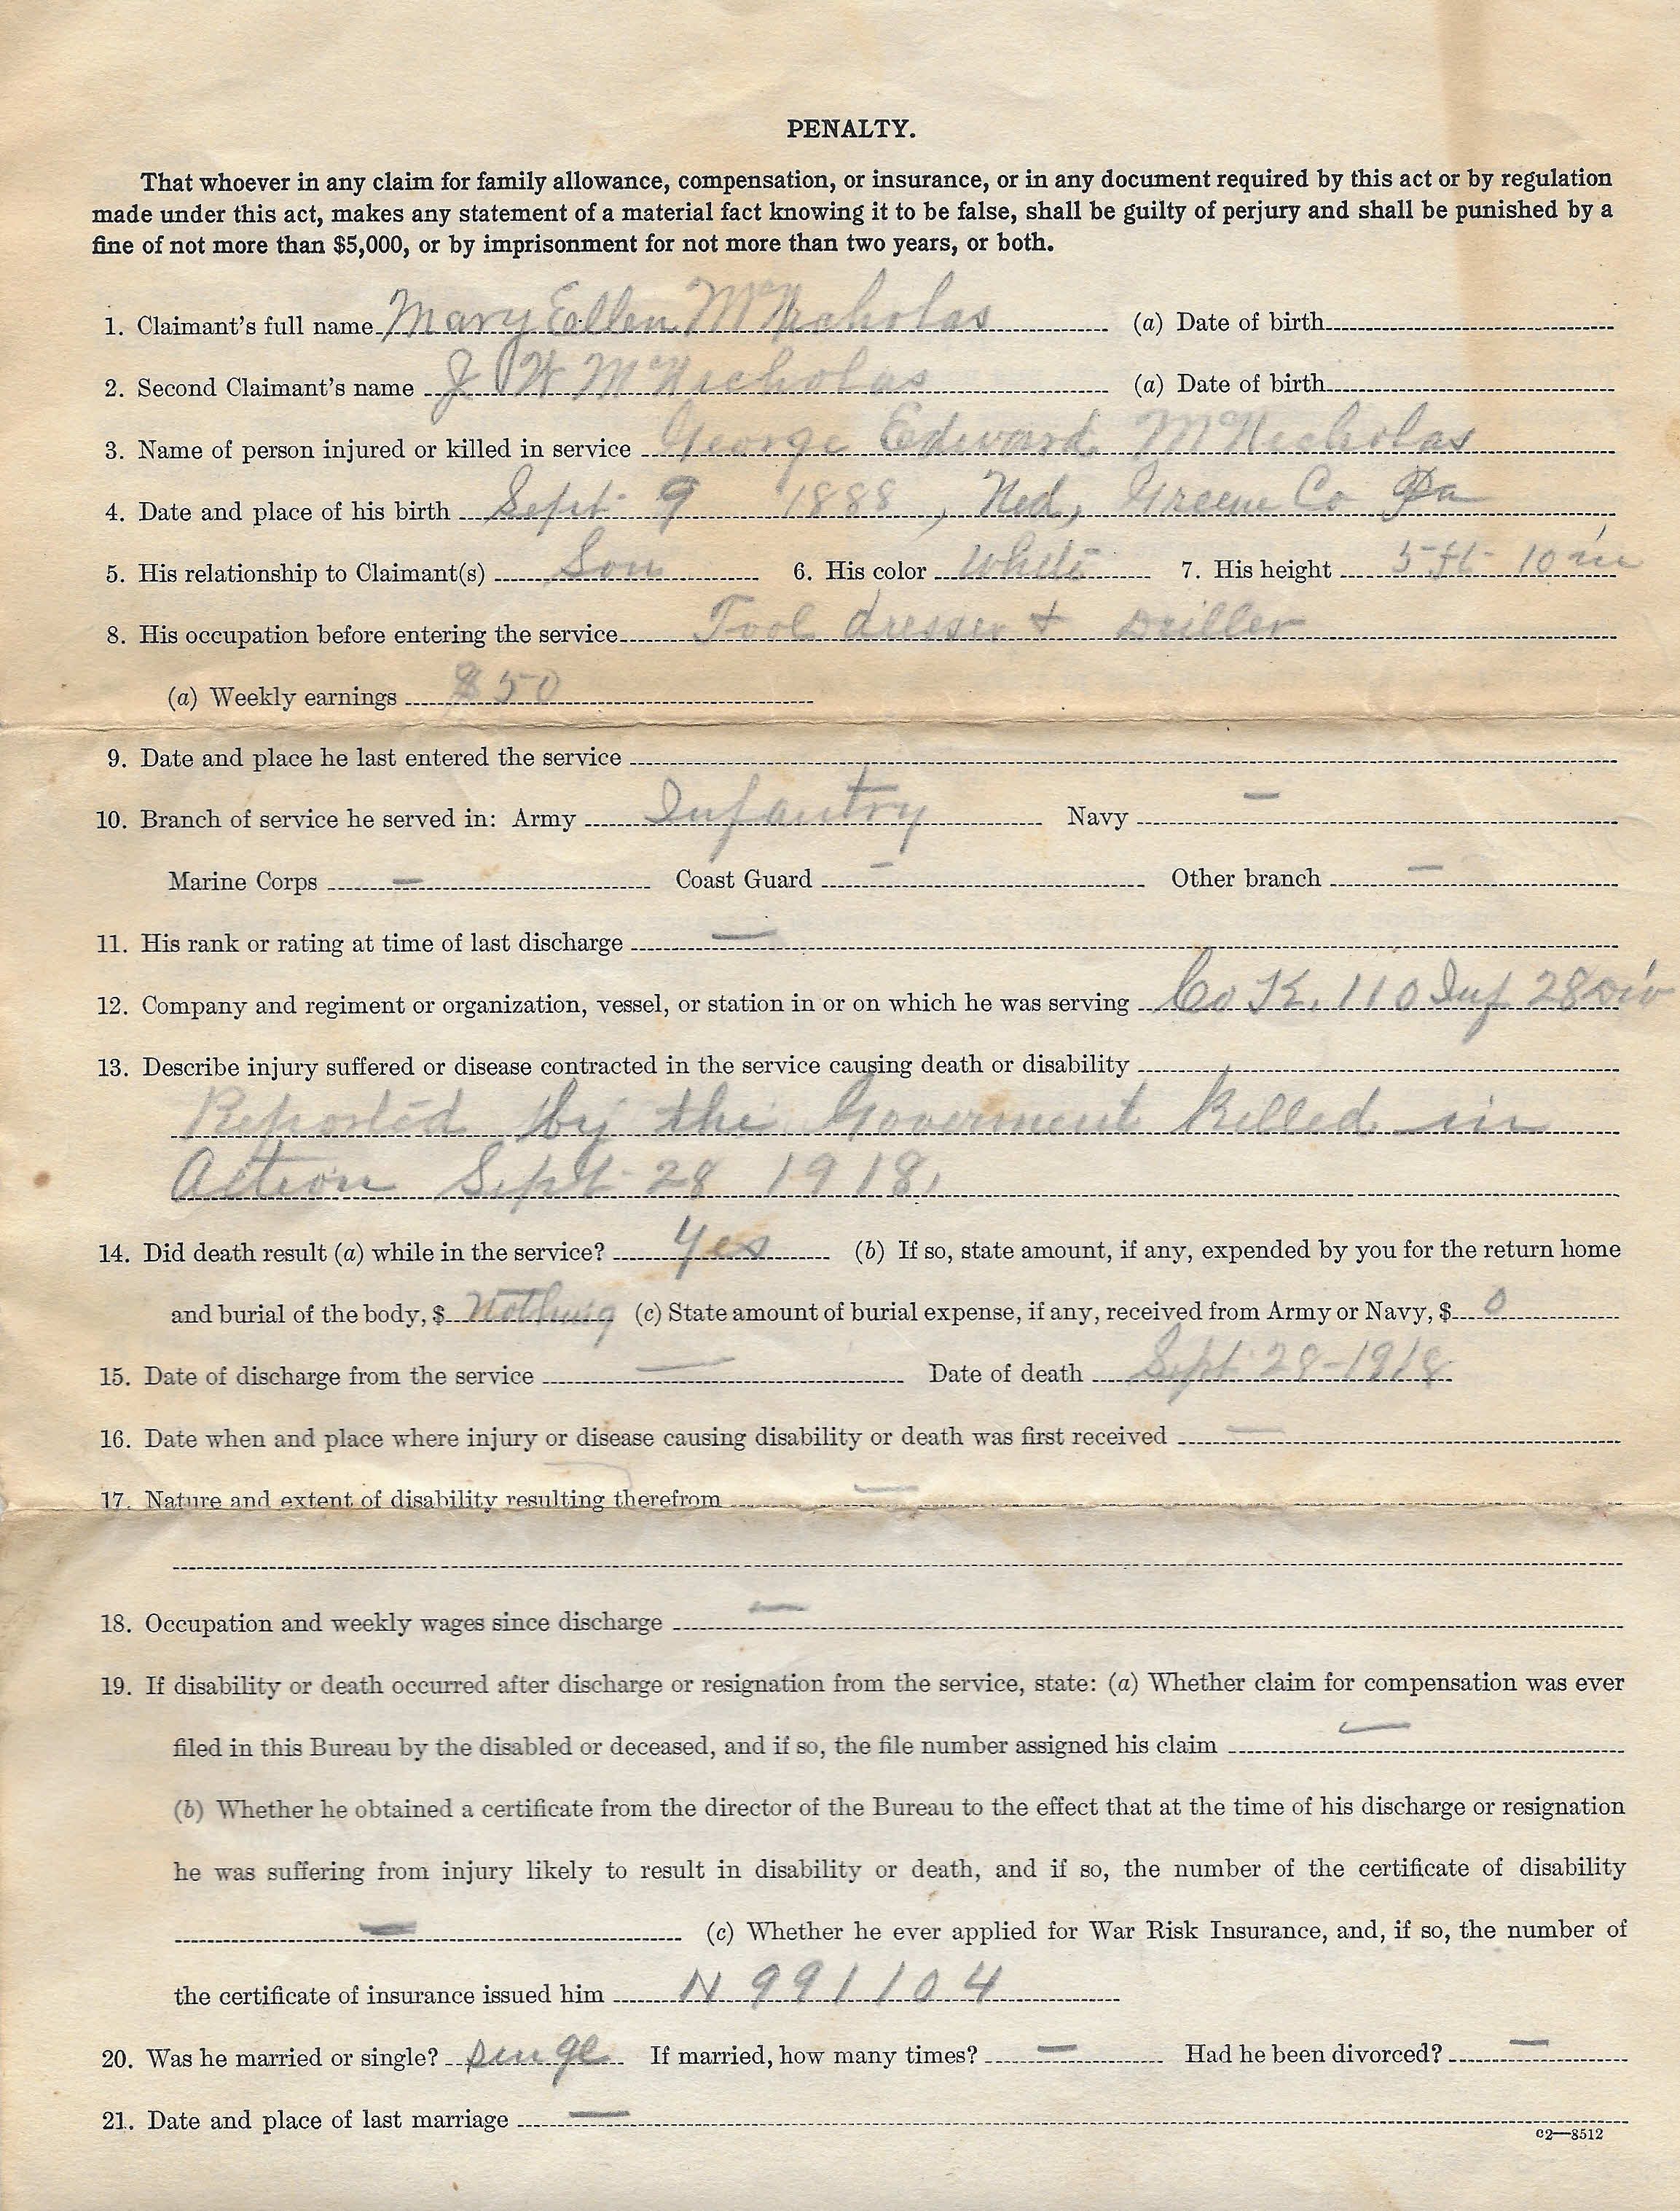 PENALTY.
That whoever in any claim for family allowance, compensation, or insurance, or in any document required by this act or by regulation
made under this act, makes any statement of a material fact knowing it to be false, shall be guilty of perjury and shall be punished by a
fine of not more than $5,000, or by imprisonment for not more than two years, or both.
1. Claimant's full name Mary Eellen McNicholas (a) Date of birth
2. Second Claimant's name J W McNicholas (a) Date of birth
3. Name of person injured or killed in service George Edward McNicholas
4. Date and place of his birth Sept 9 1888, Ned, Greene Co Pa
5. His relationship to Claimant(s) Son 6. His color White 7. His height 5 ft 10 in
8. His occupation before entering the service Tool dresser + Driller
(a) Weekly earnings $50
9. Date and place he last entered the service
10. Branch of service he served in: Army Infantry Navy —
Marine Corps — Coast Guard — Other branch —
11. His rank or rating at time of last discharge —
12. Company and regiment or organization, vessel, or station in or on which he was serving Co K. 110 Inf 28 Div
13. Describe injury suffered or disease contracted in the service causing death or disability
Reported by the Goverment Killed in
Action Sept 28 1918,
14. Did death result (a) while in the service? Yes (b) If so, state amount, if any, expended by you for the return home
and burial of the body, $ Nothing (c) State amount of burial expense, if any, received from Army or Navy, $ 0
15. Date of discharge from the service — Date of death Sept 28-1918
16. Date when and place where injury or disease causing disability or death was first received —
17. Nature and extent of disability resulting therefrom —
18. Occupation and weekly wages since discharge —
19. If disability or death occurred after discharge or resignation from the service, state: (a) Whether claim for compensation was ever
filed in this Bureau by the disabled or deceased, and if so, the file number assigned his claim —
(b) Whether he obtained a certificate from the director of the Bureau to the effect that at the time of his discharge or resignation
he was suffering from injury likely to result in disability or death, and if so, the number of the certificate of disability
— (c) Whether he ever applied for War Risk Insurance, and, if so, the number of
the certificate of insurance issued him N 991104
20. Was he married or single? singe If married, how many times? — Had he been divorced? —
21. Date and place of last marriage —
c2—8512